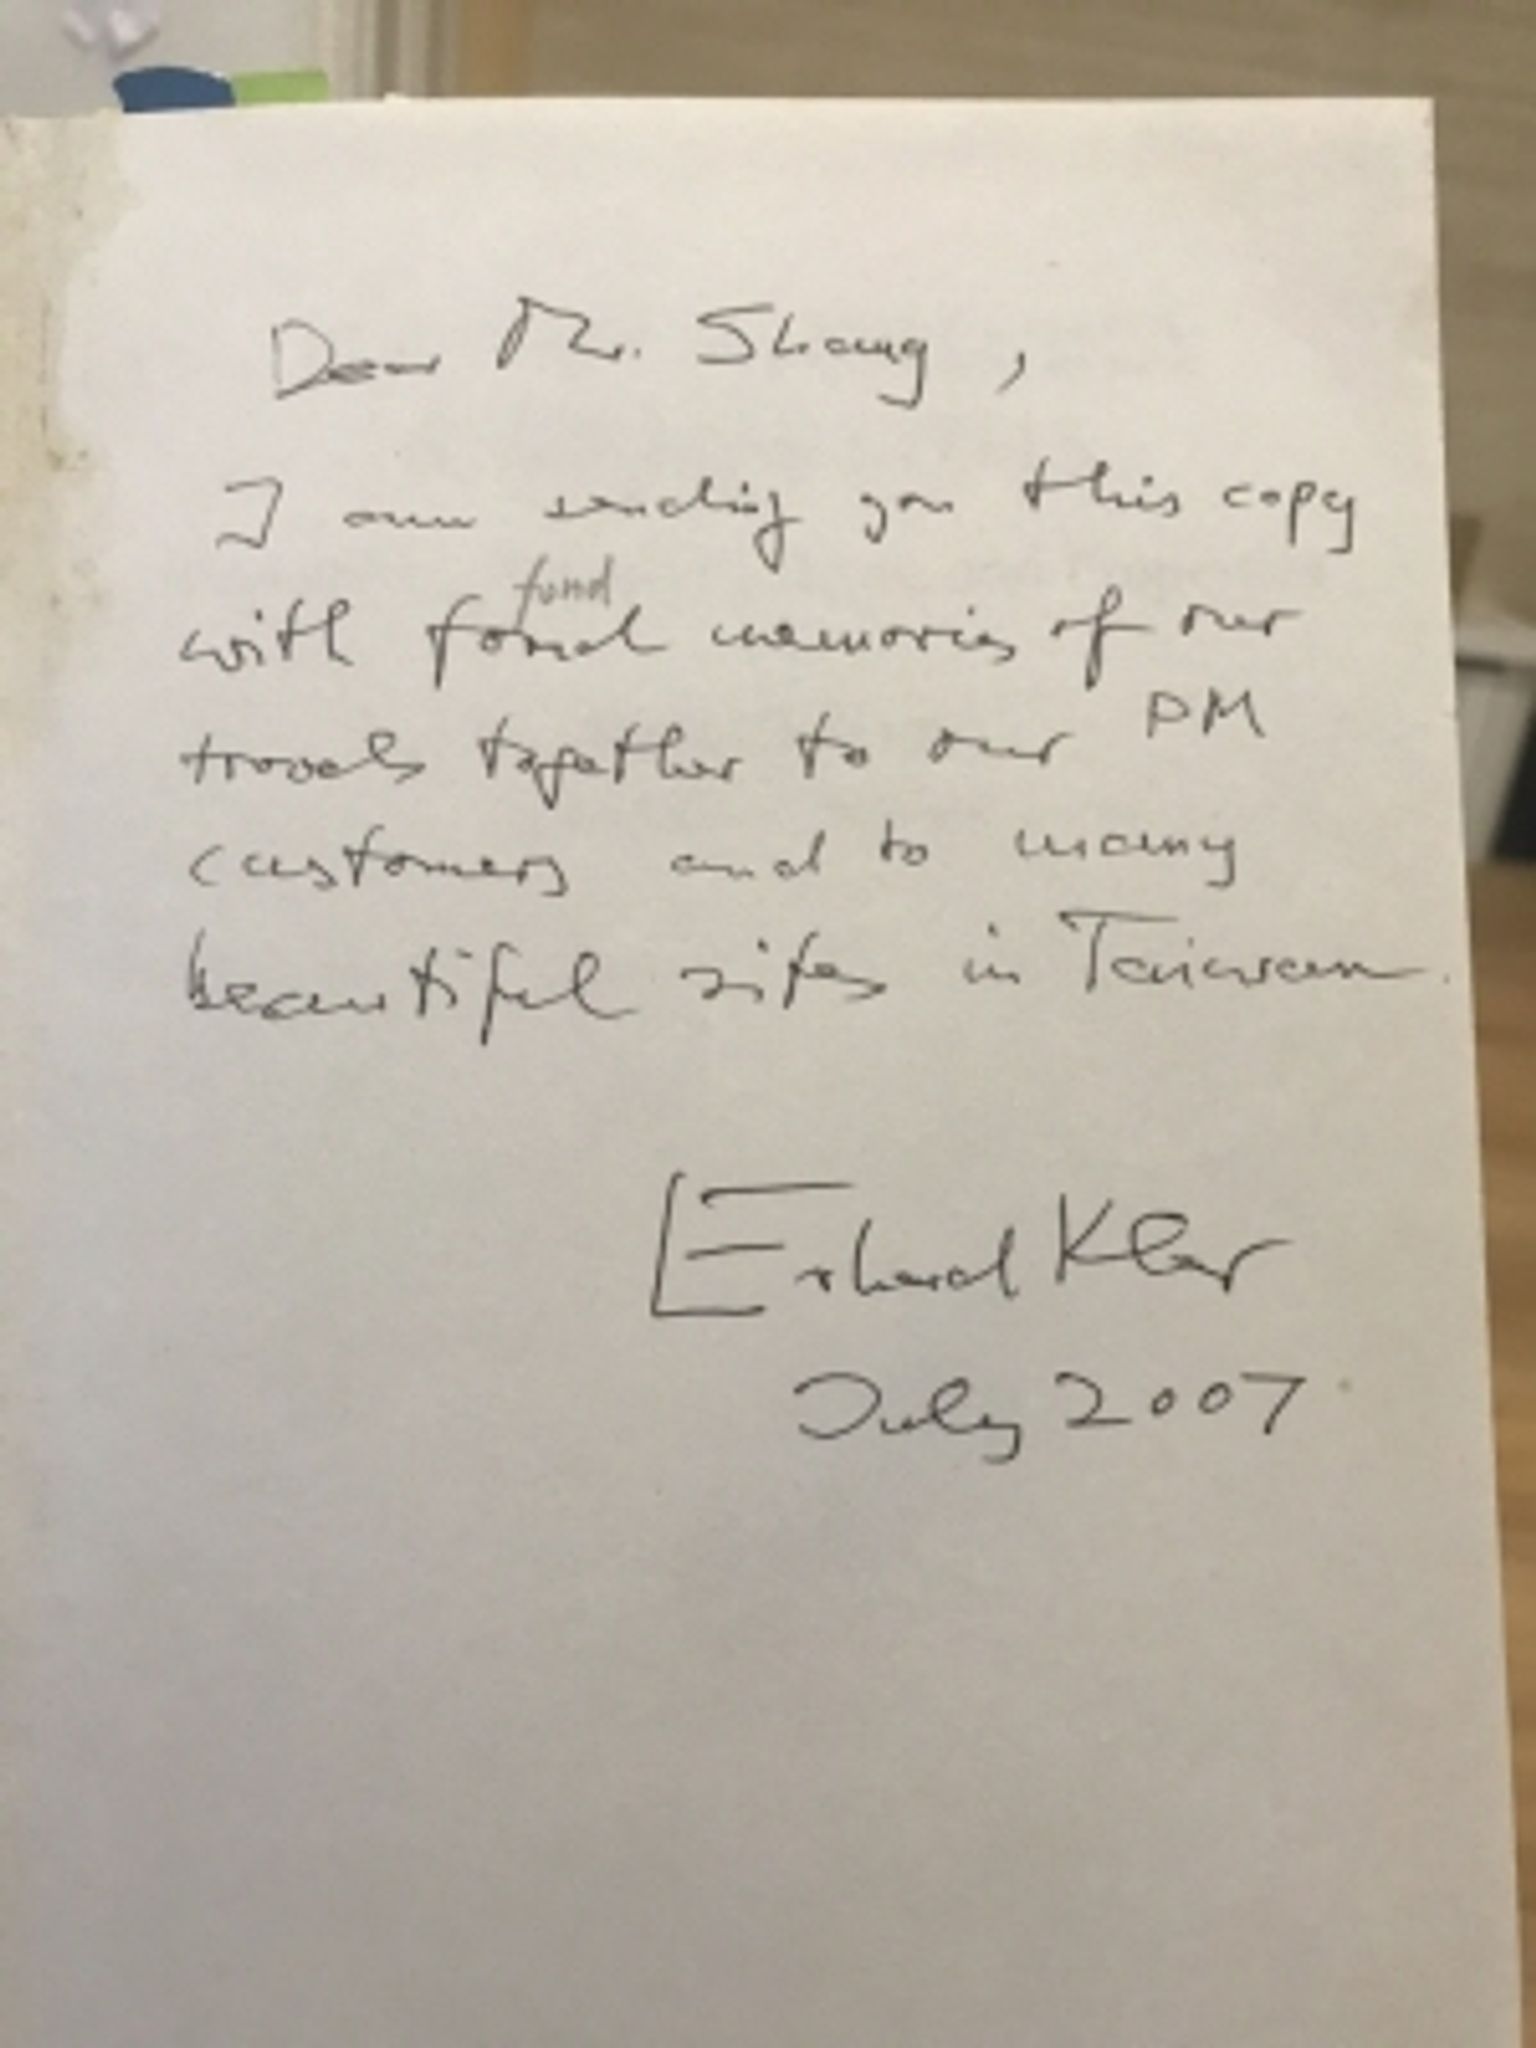 Dear Mr. Shang,
I am sending you this copy
fond
with fond memories of our
travels together to our PM
customers and to many
beautiful sites in Taiwan.
Erhard Klar
July 2007